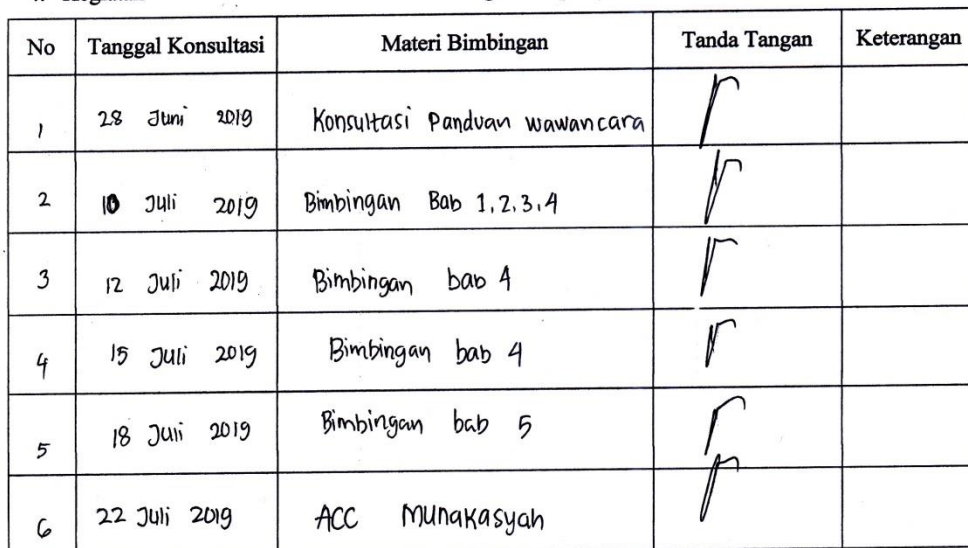 No Tanggal Konsultasi Materi Bimbingan Tanda Tangan Keterangan
1 28 Juni 2019 Konsultasi Panduan wawancara
2 10 Juli 2019 Bimbingan Bab 1,2,3,4
3 12 Juli 2019 Bimbingan bab 4
4 15 Juli 2019 Bimbingan bab 4
5 18 Juli 2019 Bimbingan bab 5
6 22 Juli 2019 ACC Munakasyah